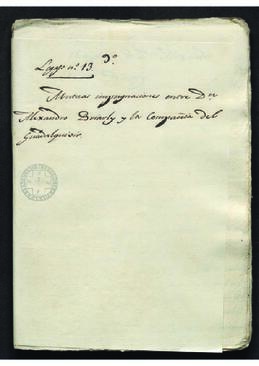 Legajo nº. 13. 3º.
Mutuas impugnaciones entre Dn.
Alexandro Briarly y la Compañia del
Guadalquivir.